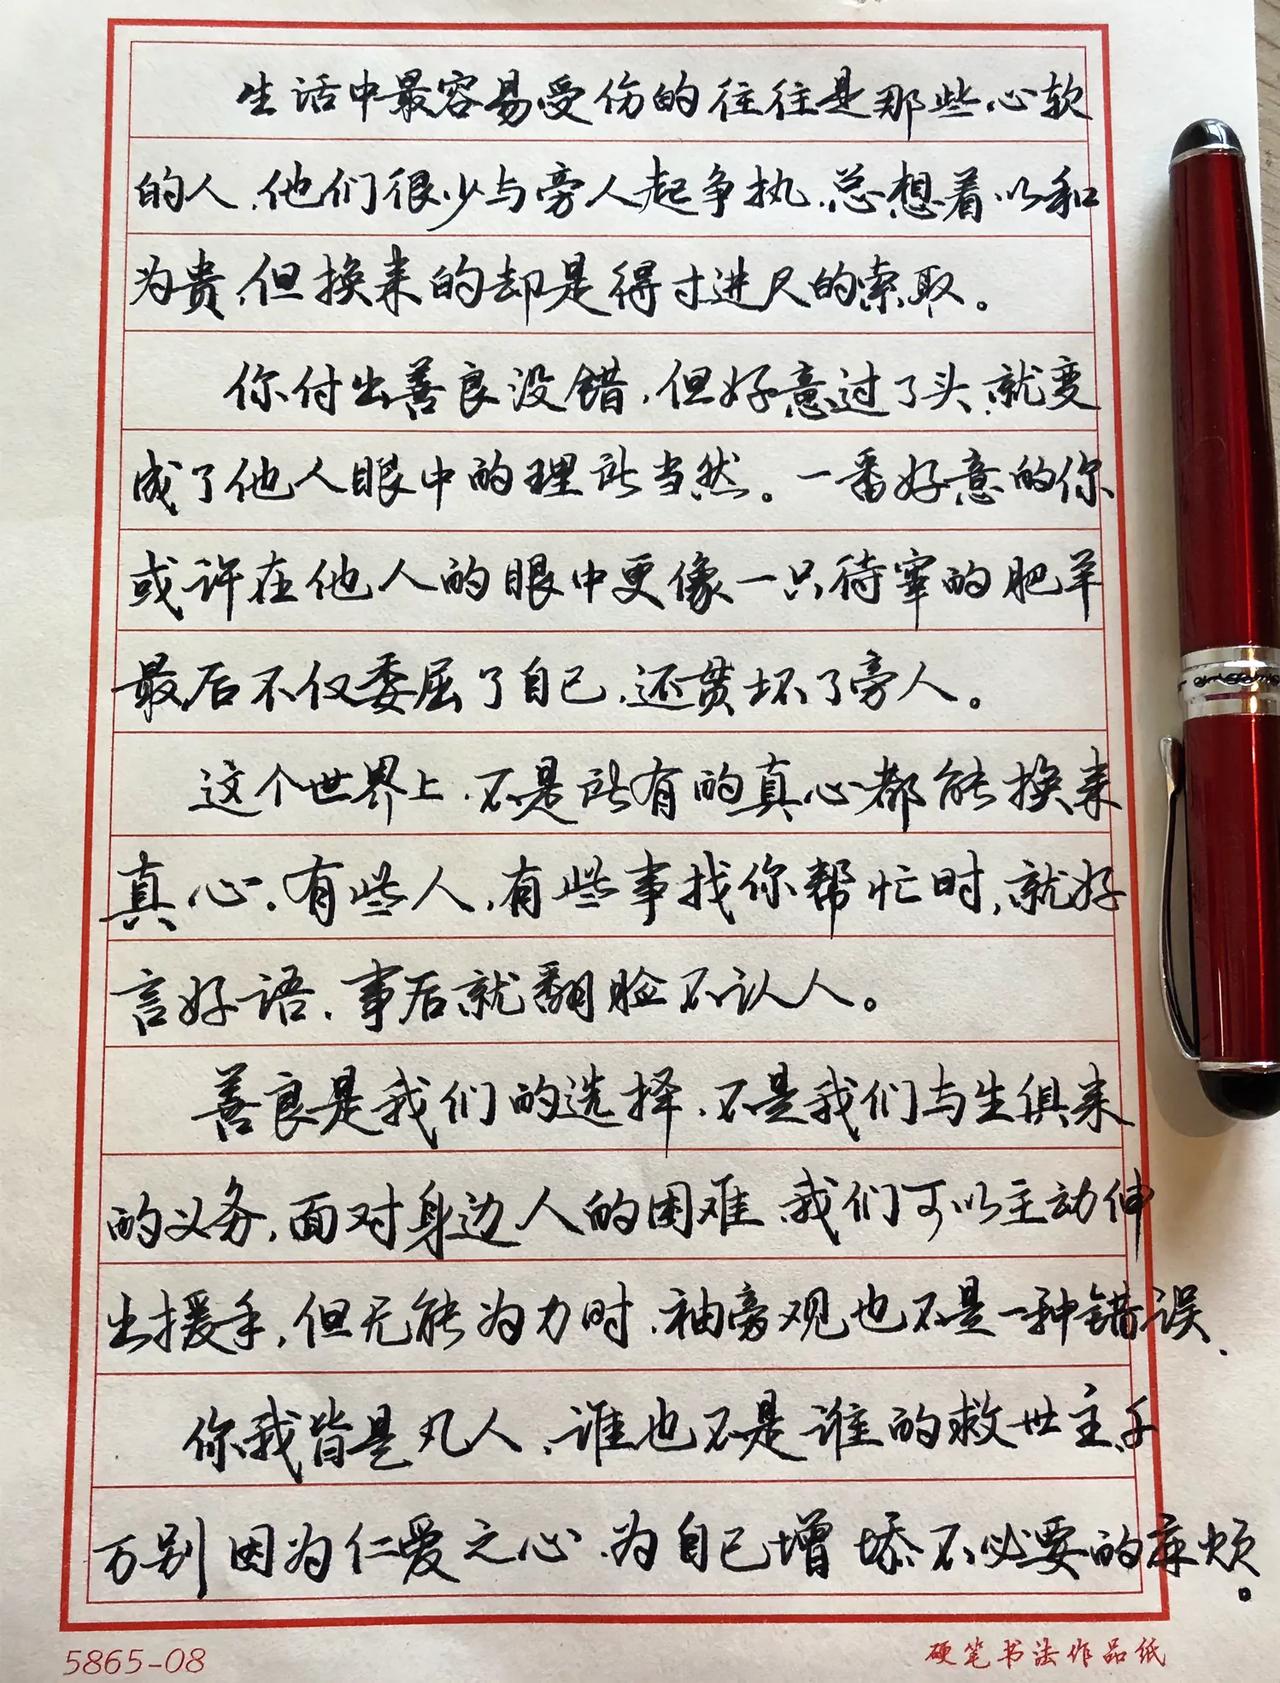 生活中最容易受伤的往往是那些心软
的人,他们很少与旁人起争执,总想着以和
为贵,但换来的却是得寸进尺的索取。
你付出善良没错,但好意过了头,就变
成了他人眼中的理所当然。一番好意的你
或许在他人的眼中更像一只待宰的肥羊
最后不仅委屈了自己,还贯坏了旁人。
这个世界上,不是所有的真心都能换来
真心,有些人,有些事找你帮忙时,就好
言好语,事后就翻脸不认人。
善良是我们的选择,不是我们与生俱来
的义务,面对身边人的困难,我们可以主动伸
出援手,但无能为力时,袖旁观也不是一种错误.
你我皆是凡人,谁也不是谁的救世主,千
万别因为仁爱之心,为自己增添不必要的麻烦。
5865-08
硬笔书法作品纸